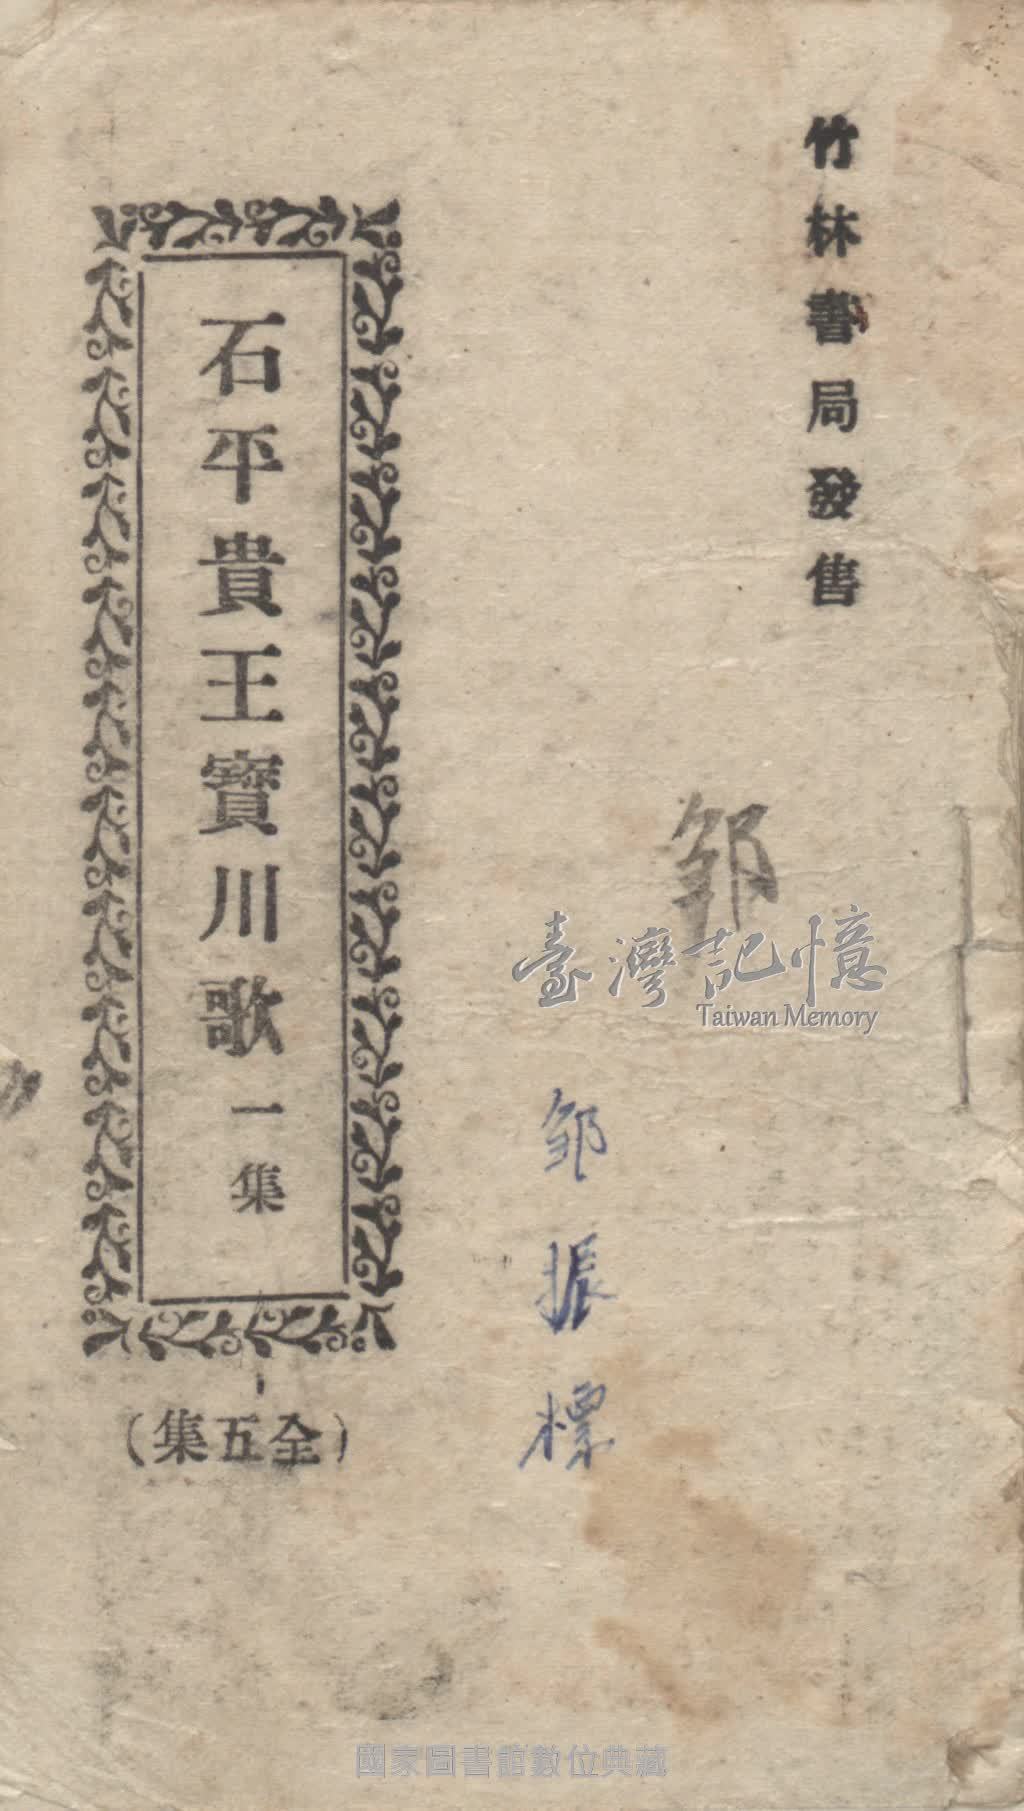 竹林書局發售
鄒
鄒振標
石平貴王寶川歌 一集
（全五集）
臺灣記憶
Taiwan Memory
國家圖書館數位典藏